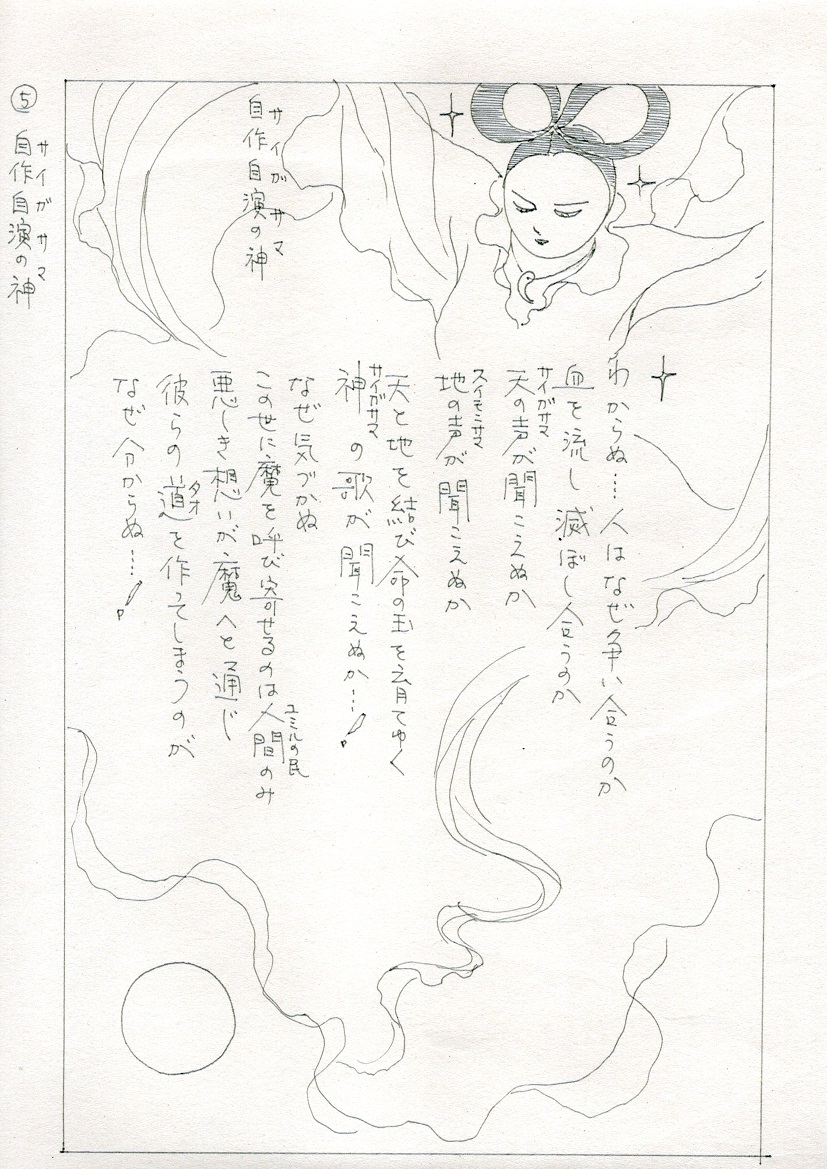 ⑤
自作自演の神
サイガサマ
自作自演の神
サイガサマ
わからぬ……人はなぜ争い合うのか
血を流し滅ぼし合うのか
天の声が聞こえぬか
サイガサマ
地の声が聞こえぬか
スイモニサマ
天と地を結び命の玉を育てゆく
神の歌が聞こえぬか…!
サイガサマ
なぜ気づかぬ
この世に魔を呼び寄せるのは人間のみ
ユミルの民
悪しき想いが魔へと通じ
彼らの道を作ってしまうのが
タオ
なぜ分からぬ……!